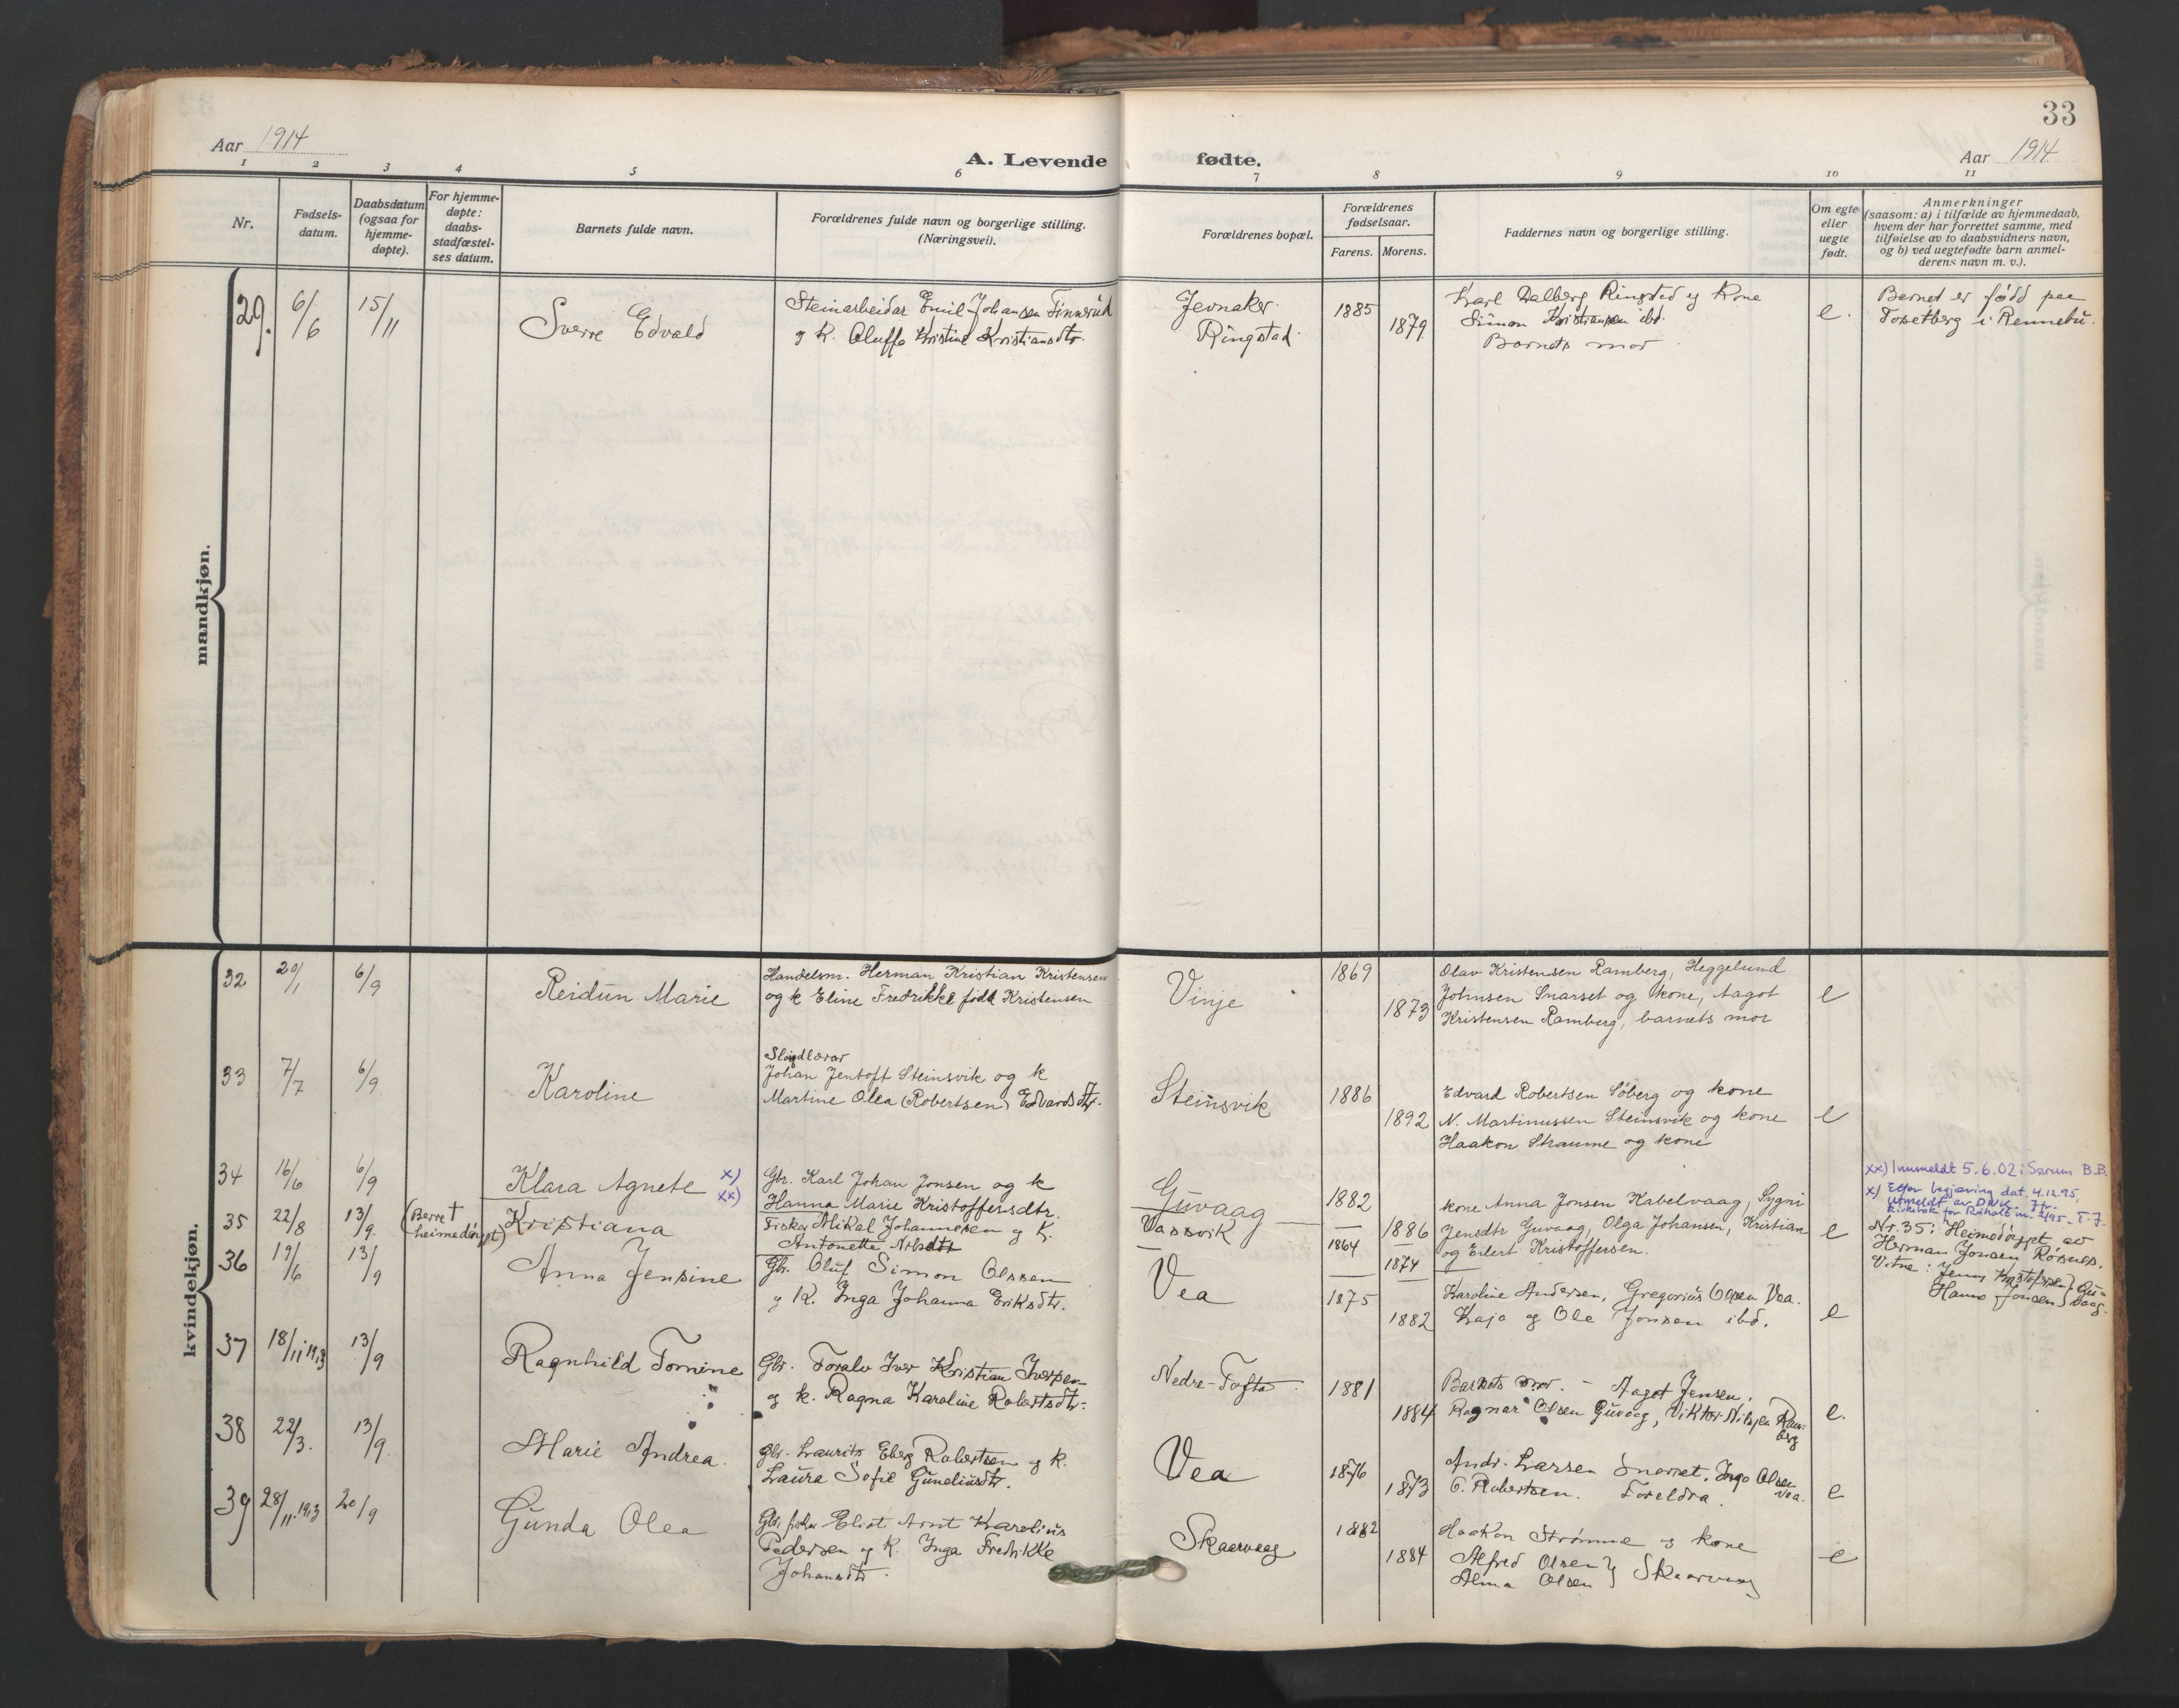 33
Aar 1914
A. Levende
fødte.
Aar 1914
1 2 3 4 5 6 7 8 9 10 11
Nr.
Fødsels-
datum.
Daabsdatum
(ogsaa for
hjemme-
døpte).
For hjemme-
døpte:
daabs-
stadfæstel-
ses datum.
Barnets fulde navn.
Forældrenes fulde navn og borgerlige stilling.
(Næringsvei).
Forældrenes bopæl.
Forældrenes
fødselsaar.
Farens. Morens.
Faddernes navn og borgerlige stilling.
Om egte
eller
uegte
født.
Anmerkninger
(saasom: a) i tilfælde av hjemmedaab,
hvem der har forrettet samme, med
tilføielse av to daabsvidners navn,
og b) ved uegtefødte barn anmel-
derens navn m. v.).
mandkjøn.
29. 6/6 15/11
Sverre Edvald
Steinarbeidar Emil Johansen Finnerud
g K. Oluffa Kristine Kristiansdtr.
Jevnaker
Ringstad
1885
1879
Karl Dalberg Ringstad og Kone
Simon Kristiansen ibd.
Barnets mor
e.
Barnet er fødd paa
Tosetberg i Rennebu.
kvindekjøn.
32 20/1 6/9
Reidun Marie
Handelsm. Herman Kristian Kristensen
og k Eline Fredrikke født Kristensen
Vinje
1869
1873
Olav Kristensen Ramberg, Heggelund
Johnsen Snarset og kone, Aagot
Kristensen Ramberg, barnets mor
e
33 7/7 6/9
Karoline
Sløjdlærar
Johan Jentoft Steinsvik og k
Martine Olea (Robertsen) Edvardsdtr.
Steinsvik
1886
1892
Edvard Robertsen Søberg og kone
N. Martinussen Steinsvik og kone
Haakon Straume og kone
e
34 16/6 6/9
Klara Agnete x)
xx)
Gbr. Karl Johan Jonsen og k
Hanna Marie Kristoffersdtr.
Guvaag
1882
1886
kone Anna Jonsen Kabelvaag, Sygni
Jensdtr Guvaag, Olga Johansen, Kristian
og Edert Kristoffersen.
e
xx) Innmeldt 5.6.02 i Sørum B.B.
x) Etter begjæring dat. 4.12.95,
utmeldt av DNK.
35 22/8 13/9. (Berre †
heimedøypt)
Kristiana
Fisker Mikal Johannesen g K.
Antonette Nilsdtr
Vassvik
1864
1874
Nr. 35: Heimedøypt av
Herman Jonsen Røsnes.
Vitne: Jenny Kristofersen} Gu-
Hanna Jonsen} vaag.
36 19/6 13/9
Anna Jensine
Gbr. Oluf Simon Olssen
g K. Inga Johanna Eriksdtr.
Vea
1875
1882
Karoline Andersen, Gregorius Olsen Vea.
Kaja og Ole Jonsen ibd.
e
37 18/11 1913 13/9
Ragnhild Tomine
Gbr. Toralv Iver Kristian Iversen
g k. Ragna Karoline Robertsdtr.
Nedre-Tofta
1881
1884
Barnets mor. - Aagot Jensen.
Ragnar Olsen Guvaag, Viktor Nilsen Ram-
berg
e.
38 22/3. 13/9.
Marie Andrea.
Gbr. Laurits Eberg Robertsen g k.
Laura Sofie Guneliusdtr.
Vea
1876
1873
Andr. Larsen Snarset. Inga Olsen
Vea.
C. Robertsen. Foreldra.
e
39 28/11.1913 20/9
Gunda Olea
Gbr. fisker Eliot Arnt Karelius
Pedersen g K. Inga Fredrikke
Johansdtr.
Skaarvaag
1882
1884
Haakon Strømme g kone
Alfred Olsen }
Alma Olsen } Skaarvaag
e